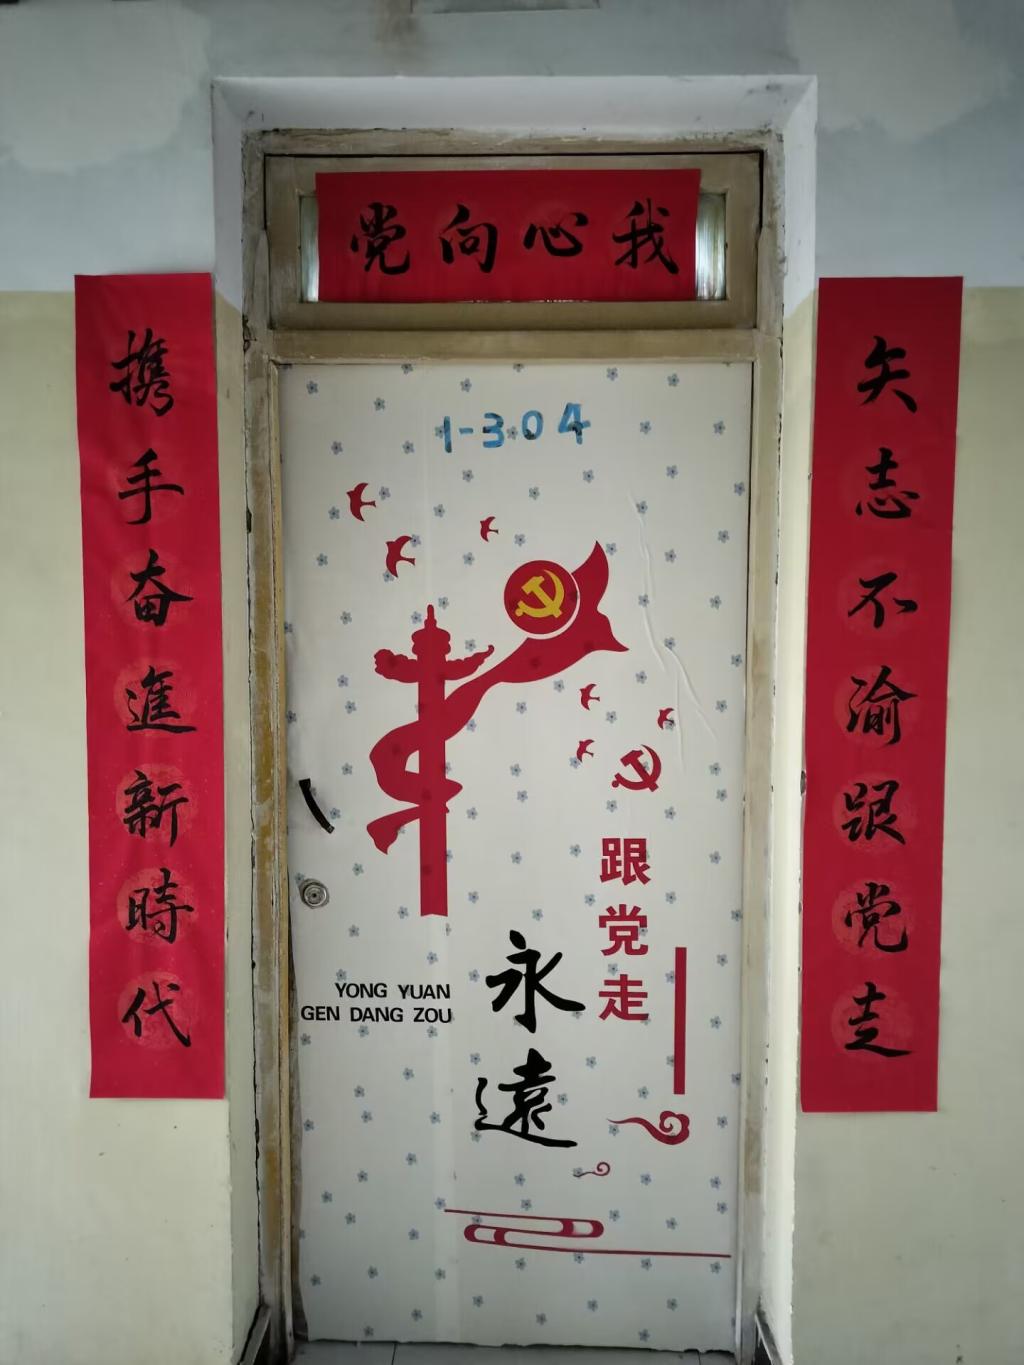 我心向党
矢志不渝跟党走
携手奋進新時代
1-304
永遠
跟党走
YONG YUAN
GEN DANG ZOU